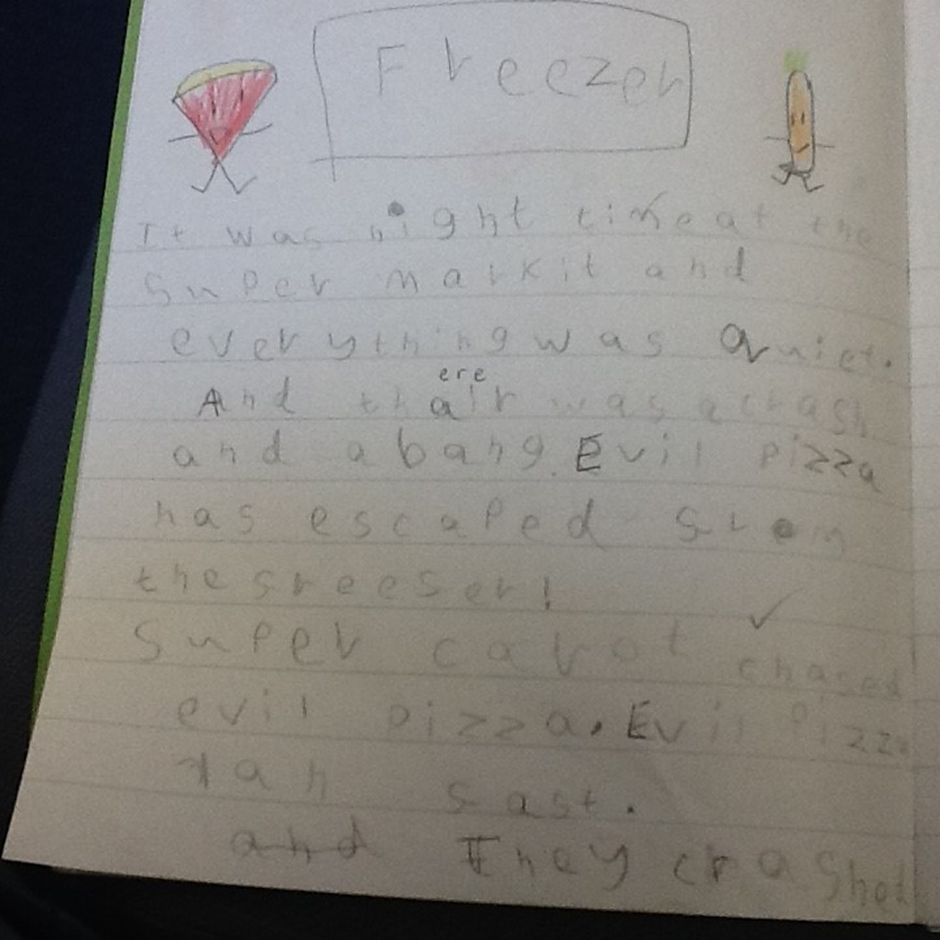 Freezer
It was night time at the
super markit and
everything was quiet.
ere
And thair was a crash
and a bang. Evil pizza
has escaped srom
the sreeser!
Super carot chased
evil pizza. Evil Pizza
ran sast.
and They crashed